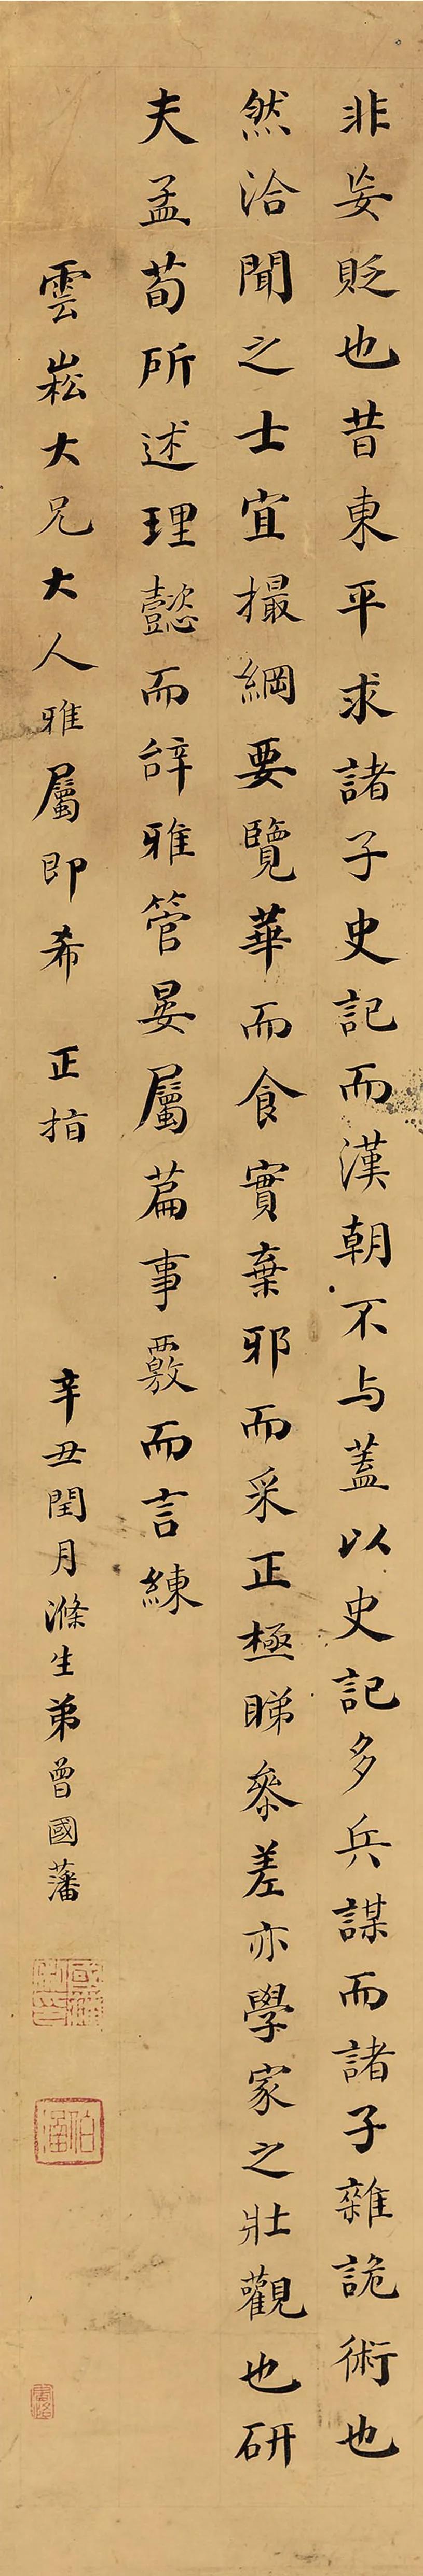 非妄貶也昔東平求諸子史記而漢朝不与蓋以史記多兵謀而諸子雜詭術也
然洽聞之士宜撮綱要覽華而食實棄邪而采正極睇叅差亦學家之壯觀也研
夫孟荀所述理懿而辞雅管晏屬篇事覈而言練
雲崧大兄大人雅屬即希 正指
辛丑閏月滌生弟曾國藩
國藩
伯涵